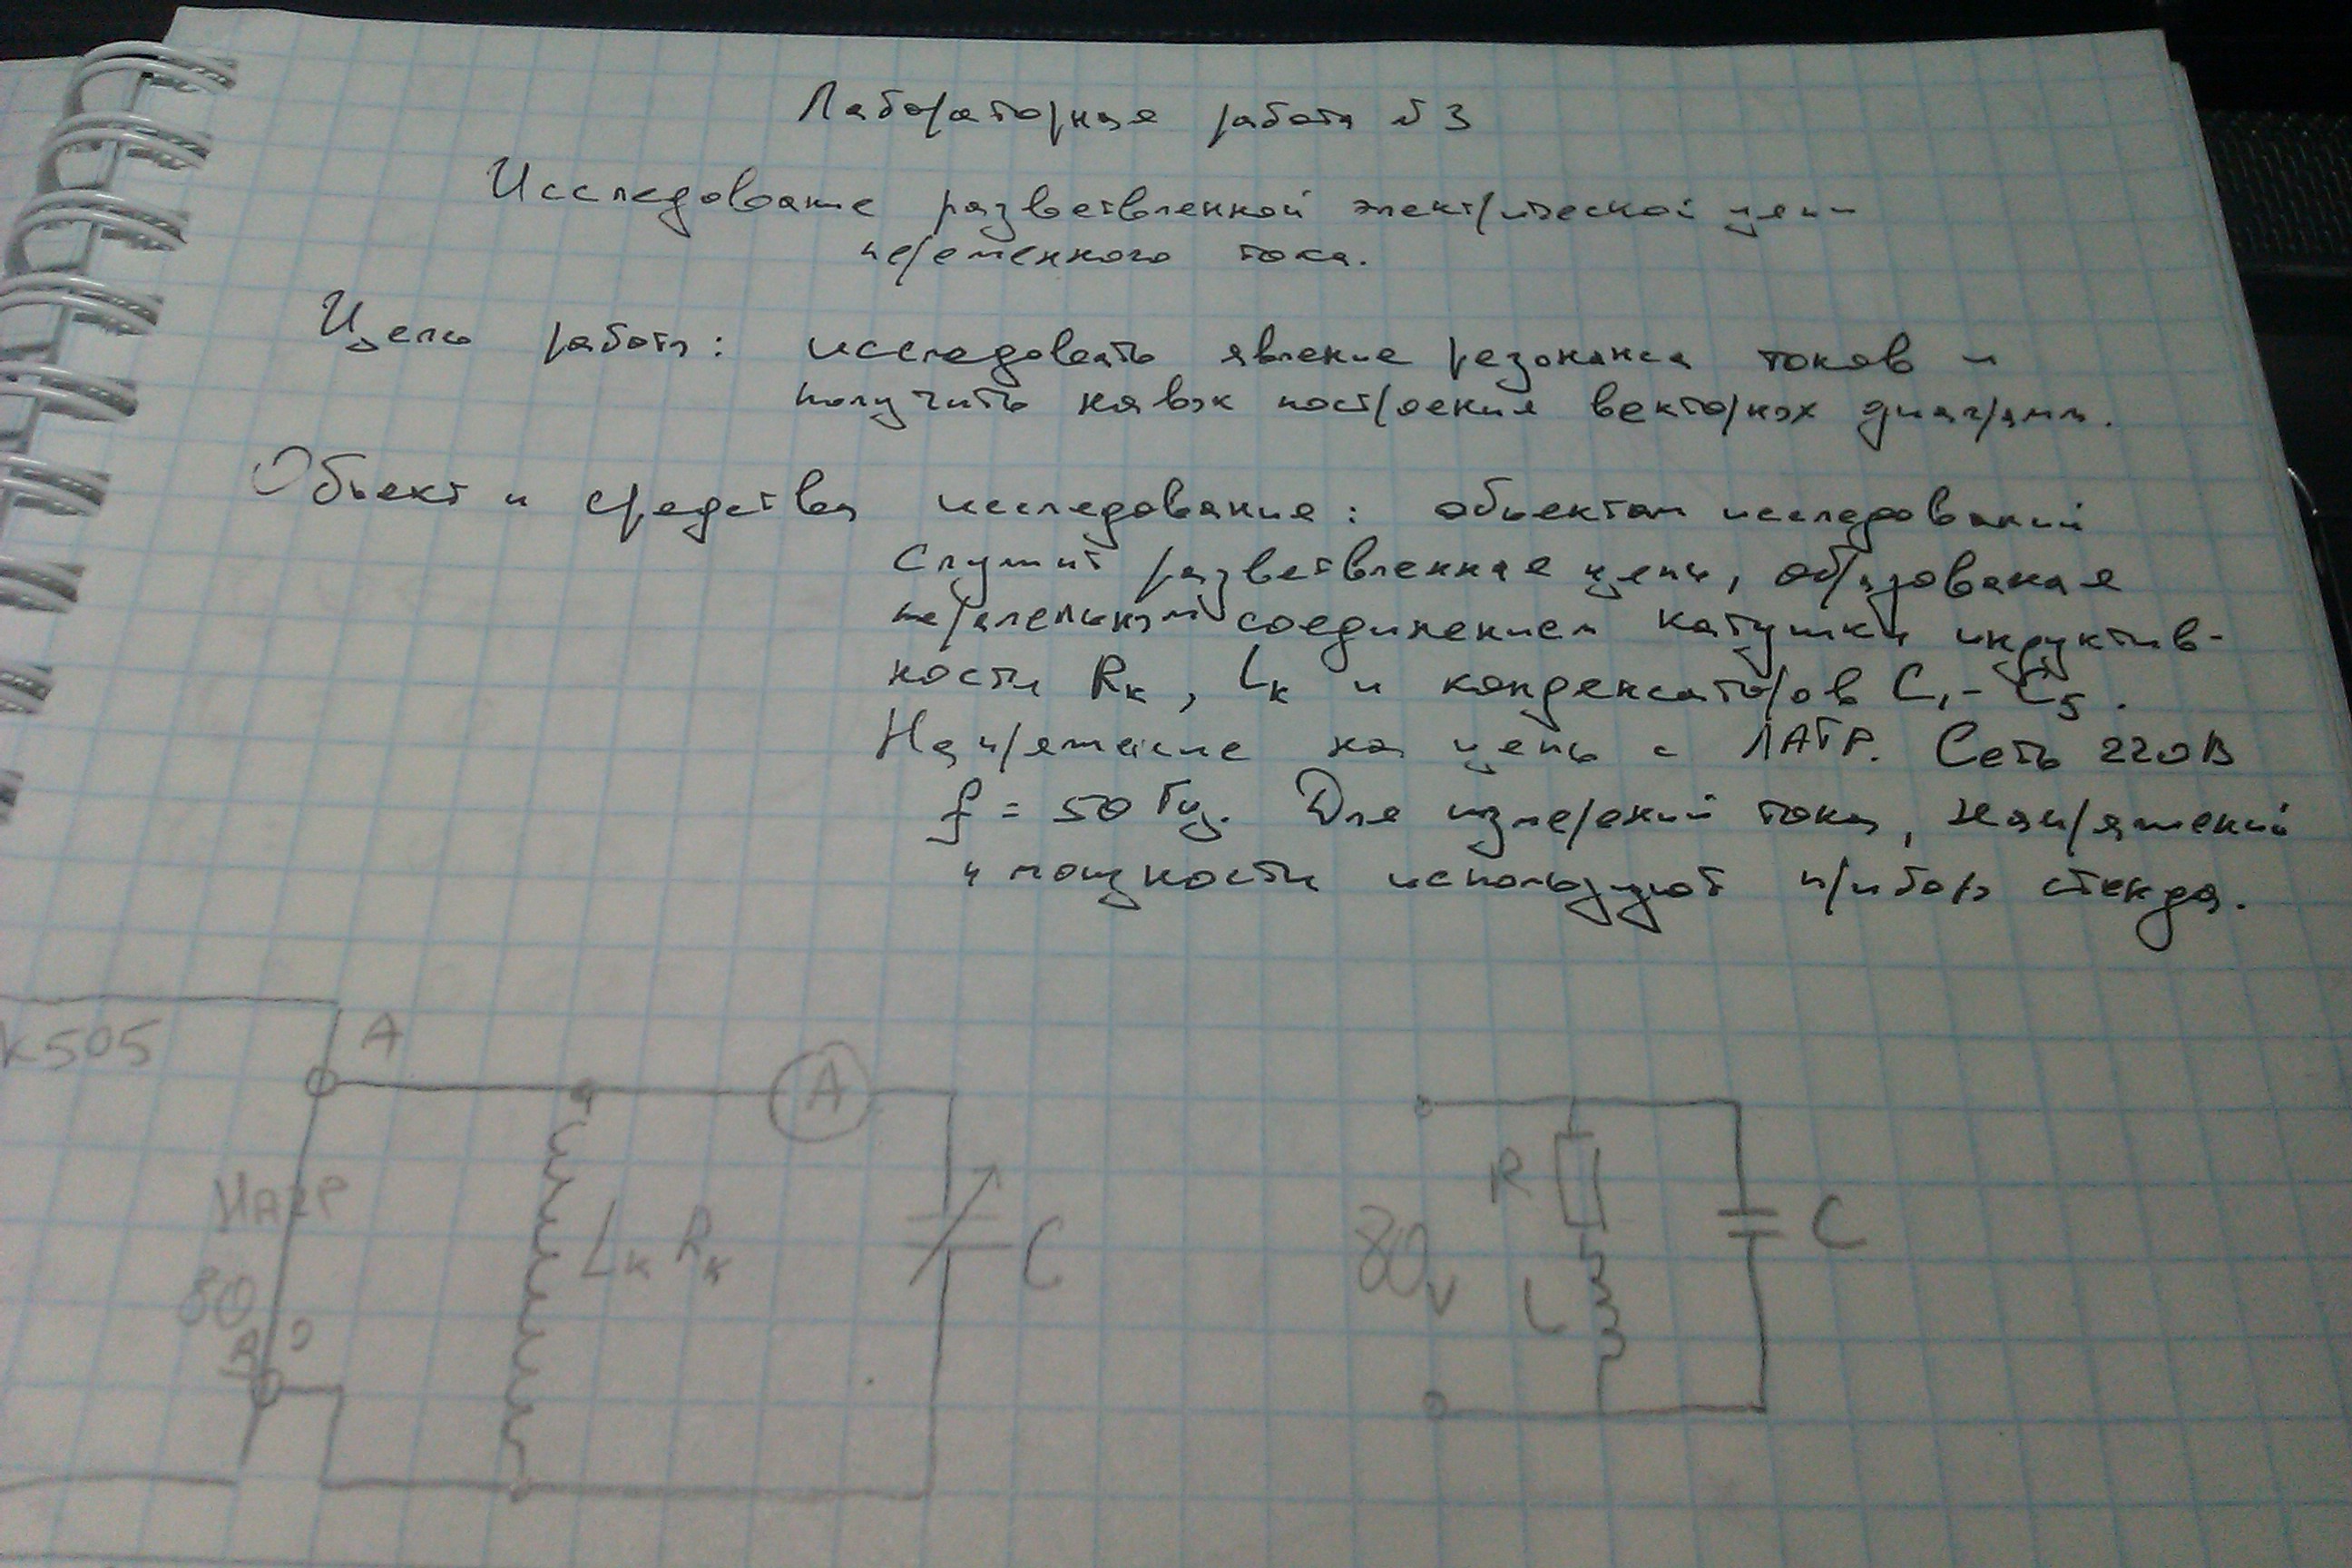 Лабораторная работа №3
Исследование разветвленной электрической цепи
переменного тока.
Цель работы: исследовать явление резонанса токов и
получить навык построения векторных диаграмм.
Объект и средства исследования: объектом исследований
служит разветвленная цепь, образованая
паралельным соединением катушки индуктив-
ности Rк, Lк и конденсаторов C1 - C5.
Напряжение на цепь с ЛАТР. Сеть 220В
f = 50 Гц. Для измерений тока, напряжений
и мощности используют приборы стенда.
К505
A
A
НАГР
Lк Rк
C
80
0
R
80v
L
C